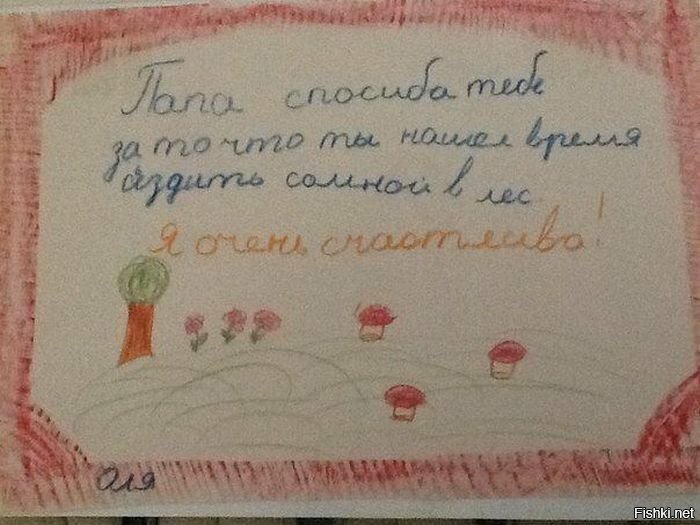 Папа спосиба тебе
за то что ты нашел время
яздить сомной в лес
Я очень счастлива!
Оля
Fishki.net